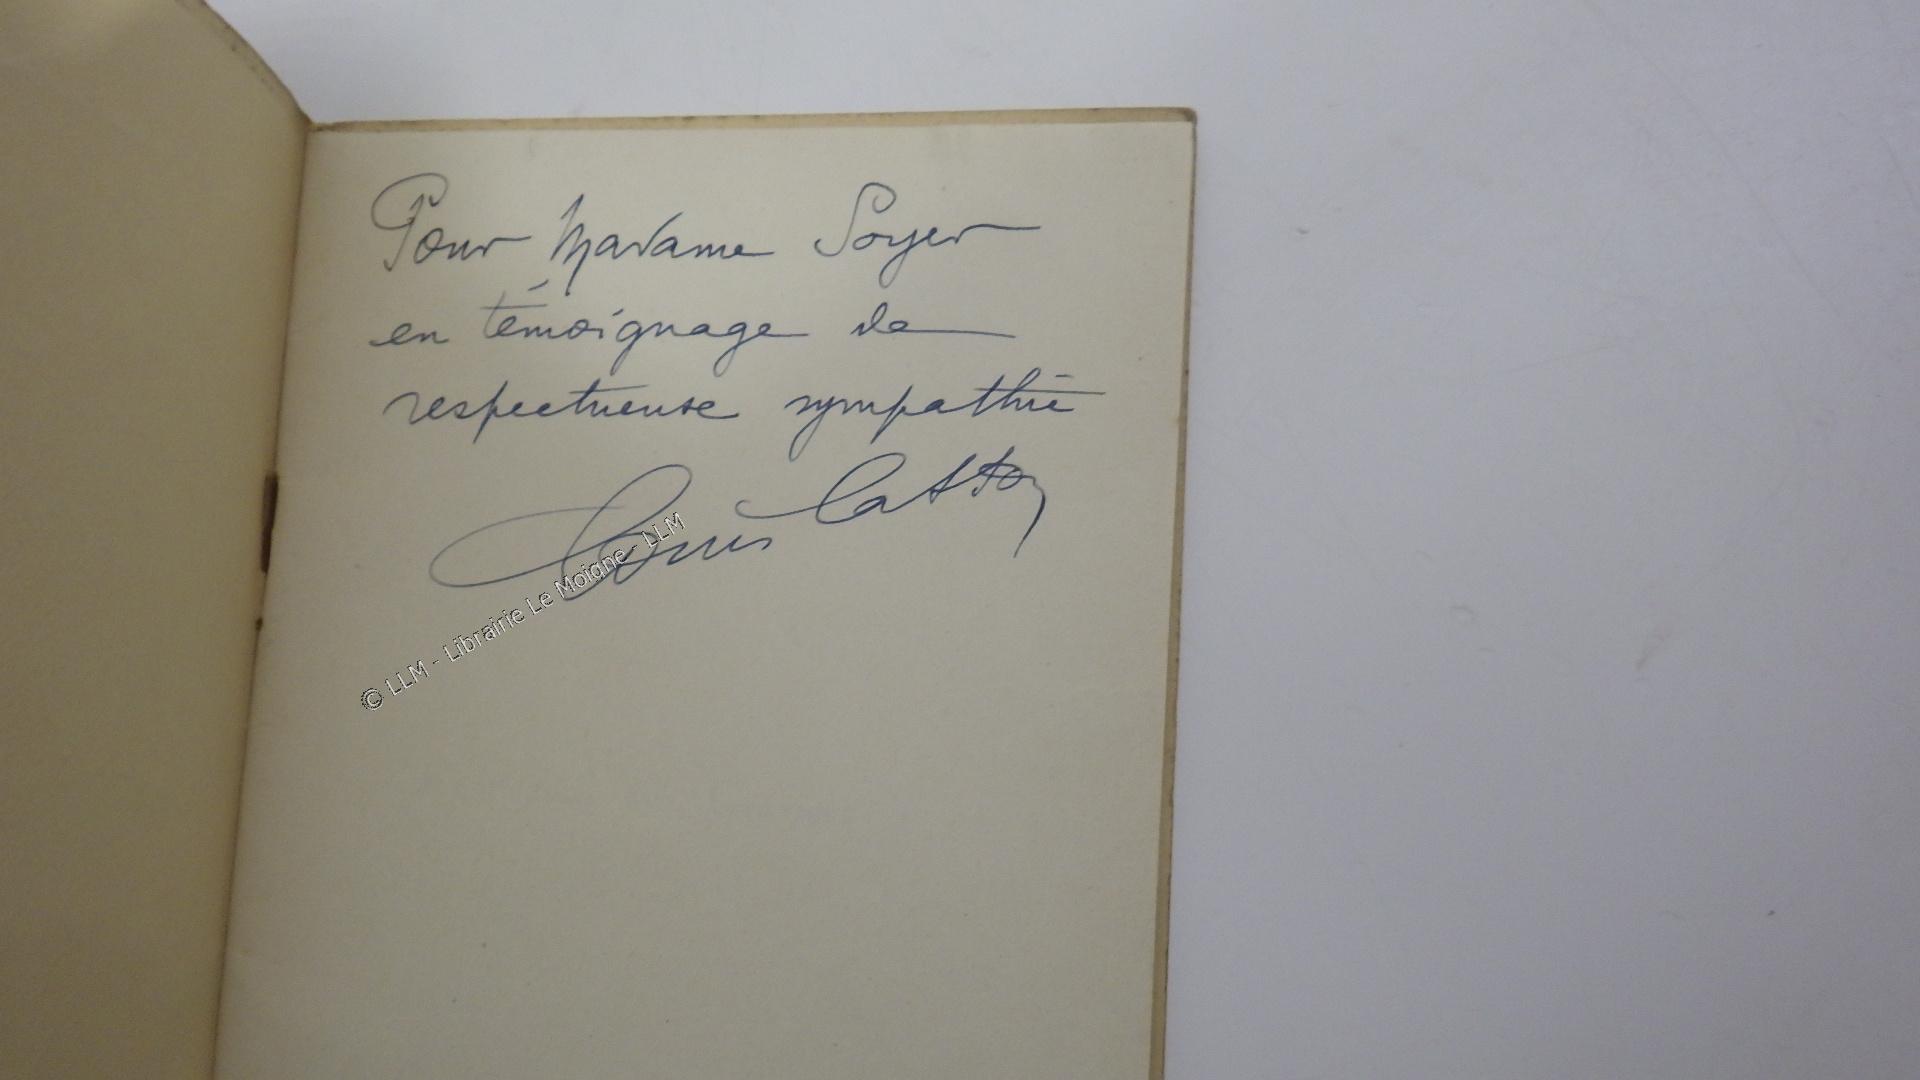 Pour Madame Soyer
en témoignage de
respectueuse sympathie
Louis
© LLM - Librairie Le Moigne - LLM